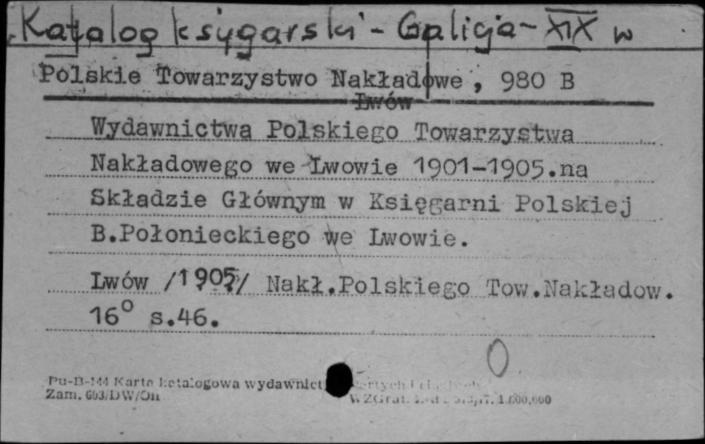 Katalog księgarski - Galicja - XIX w
Polskie Towarzystwo Nakładowe, 980 B
Lwów
Wydawnictwa Polskiego Towarzystwa
Nakładowego we Lwowie 1901-1905.na
Składzie Głównym w Księgarni Polskiej
B.Połonieckiego we Lwowie.
Lwów /1905/ Nakł.Polskiego Tow.Nakładow.
16° s.46.
0
Pu-B-144 Karta katalogowa wydawnict
Zam. 603/DW/On 1.000,000